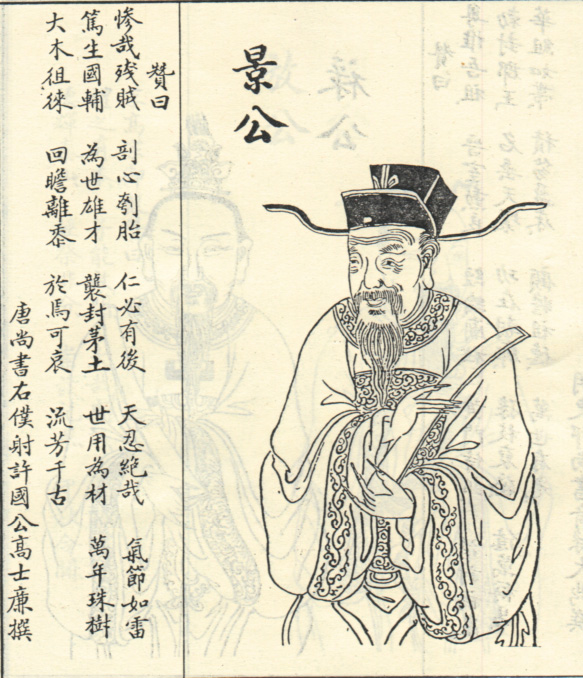 景公
贊曰
惨哉残賊 剖心刳胎 仁必有後 天忍絶哉 氣節如雷
篤生國輔 為世雄才 襲封茅土 世用為材 萬年珠樹
大木徂徠 回瞻離黍 於焉可哀 流芳千古
唐尚書右僕射許國公高士廉撰